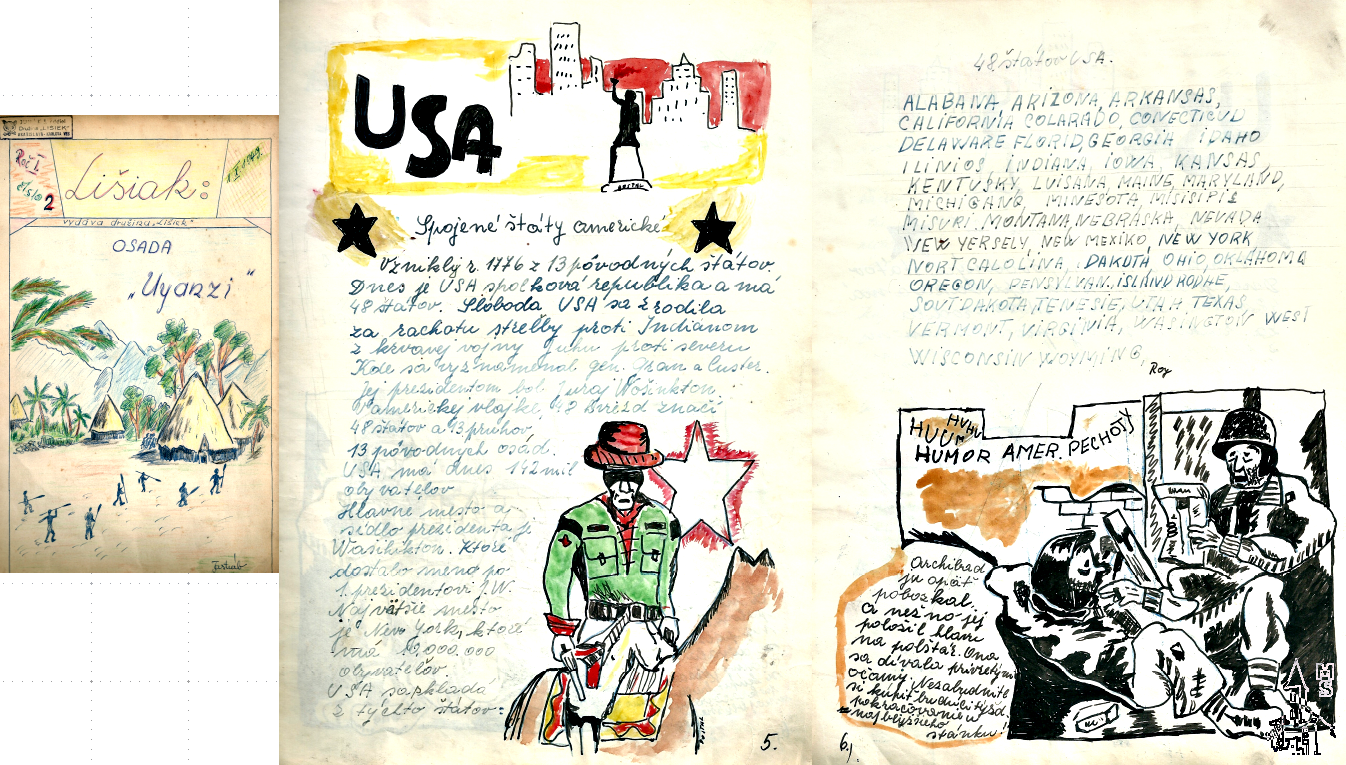 Roč I.
číslo 2
1.I.1949.
Lišiak:
vydáva družina „Lišiek"
OSADA
„Uyanzi"
Jastrab
USA
Spojené štáty americké
Vznikly r. 1776 z 13 pôvodných štátov.
Dnes je USA spolková republika a má
48 štátov. Sloboda USA sa zrodila
za rachotu streľby proti Indianom
z krvavej vojny juhu proti severu
Kde sa vyznamenal gen. Gran a Custer.
Jej prezidentom bol Juraj Wošinkton.
V americkej vlajke, 48 hviezd značí
48 štátov a 13 pruhov
13 pôvodných osád.
USA má dnes 142 mil
obyvateľov
Hlavné mesto aj
sídlo prezidenta je
Wašihkton. Ktoré
dostalo meno po
1. prezidentovi J.W.
Najväčšie mesto
je New York, ktoré
má 10,000.000
obyvateľov.
USA sa skladá
z týchto štátov:
5.
48 štátov USA.
ALABANA, ARIZONA, ARKANSAS,
CALIFORNIA COLARADO, CONECTICUD
DELAWARE FLORID, GEORGIA IDAHO
ILINIOS INDIANA, IOWA, KANSAS,
KENTUSKY, LUISANA, MAINE, MARYLAND,
MICHIGANG, MINESOTA, MISISIPI
MISURI, MONTANA, NEBRASKA, NEVADA
NEW YERSELY, NEW MEXIKO, NEW YORK
NORT CALOLINA, DAKOTA OHIO, OKLAHOMA
OREGON, PENSYLVAN, ISLAND RODHE,
SOUT DAKOTA, TENESIE, UTAH, TEXAS,
VERMONT, VIRGINIA, WASINGTON WEST
WISCONSIN WOYMING
Roy
HUHU
HUUM
HUMOR AMER. PECHOTY
Archibad
ju opäť
pobozkal.
a než no jej
položil hlavu
na polštár. Ona
sa dívala privretými
očami. Nezabudnite
si kúpiť budúci týžd.
pokračovanie v
najbližšieho
stánku!
6.